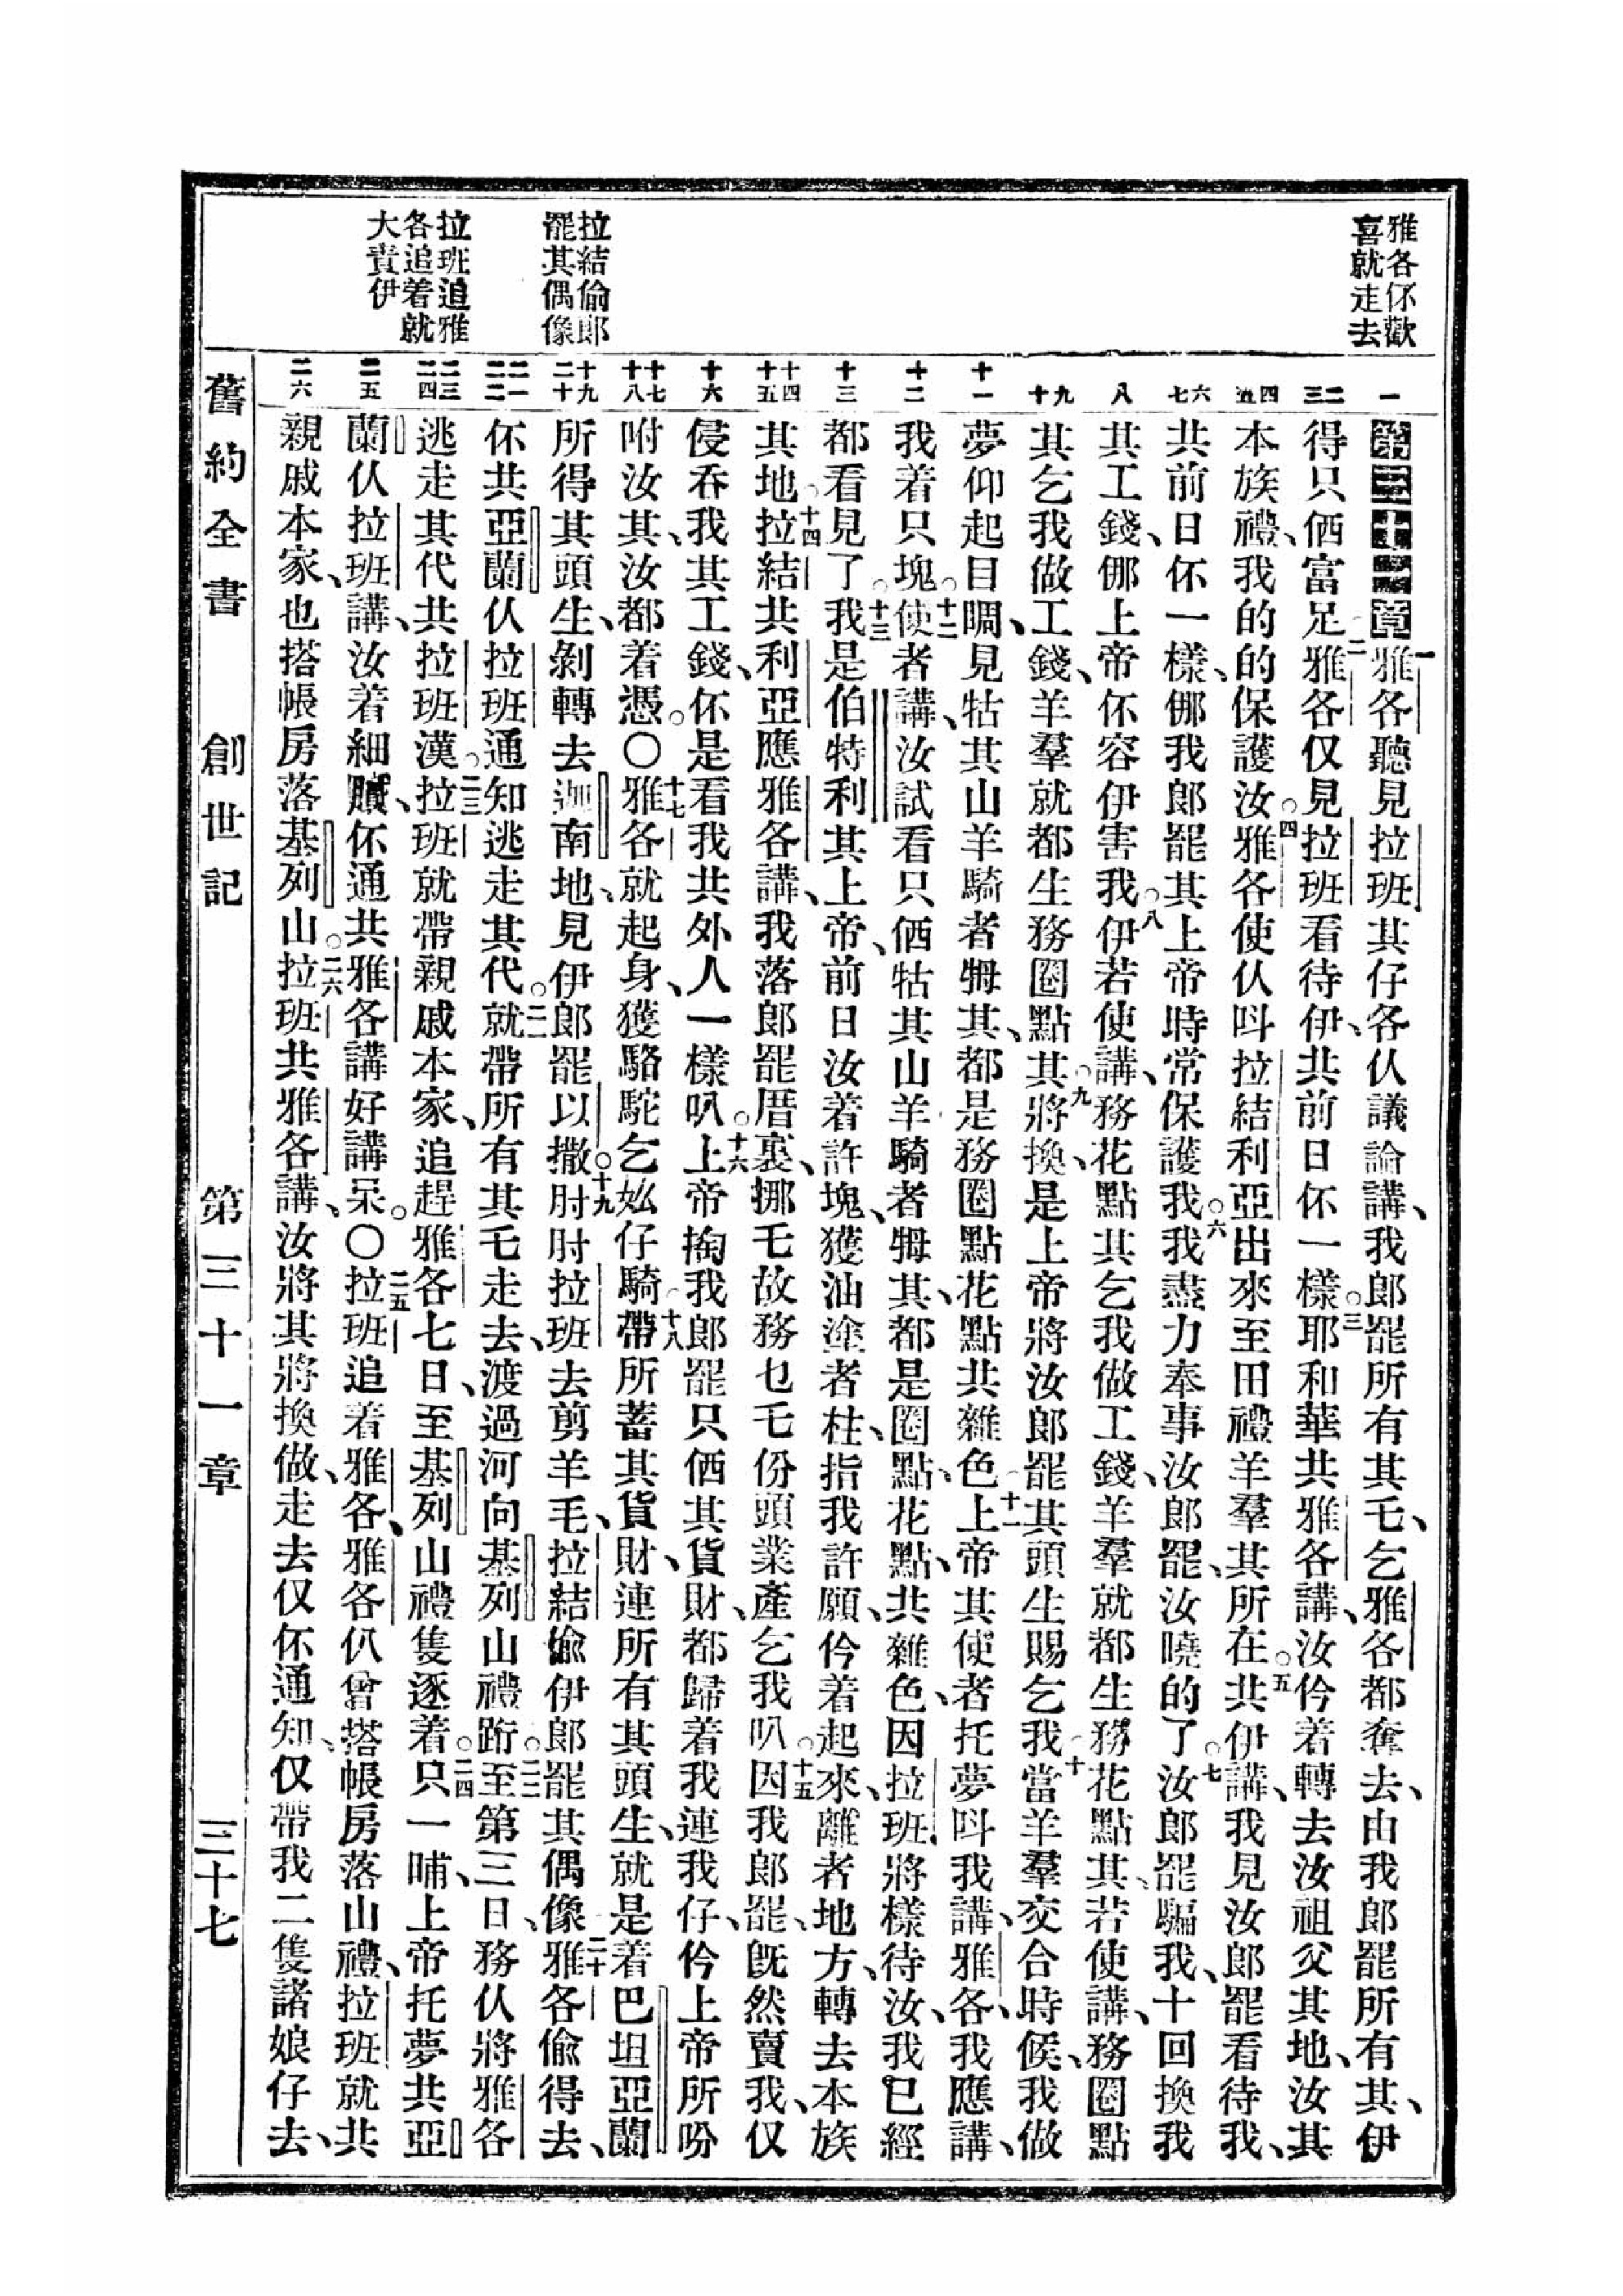 雅各伓歡
喜就走去
拉結偷郎
罷其偶像
拉班追雅
各追着就
大責伊
一
二三
四五
六七
八
九十
十一
十二
十三
十四十五
十六
十七十八
十九二十
二一二二
二三二四
二五
二六
第三十一章一雅各聽見拉班其仔各仈議論講、我郎罷所有其乇、乞雅各都奪去、由我郎罷所有其、伊
得只価富足。二雅各仅見拉班看待伊、共前日伓一樣。三耶和華共雅各講、汝仱着轉去汝祖父其地、汝其
本族禮、我的的保護汝。四雅各使仈呌拉結利亞出來至田禮羊羣其所在。五共伊講、我見汝郎罷看待我、
共前日伓一樣、㑚我郎罷其上帝時常保護我。六我盡力奉事汝郎罷、汝曉的了。七汝郎罷騙我、十回換我
其工錢、㑚上帝伓容伊害我。八伊若使講、務花點其乞我做工錢、羊羣就都生務花點其、若使講、務圈點
其乞我做工錢、羊羣就都生務圈點其。九將換、是上帝將汝郎罷其頭生賜乞我。十當羊羣交合時候、我做
夢仰起目睭、見牯其山羊騎者牳其、都是務圈點花點共雜色。十一上帝其使者托夢呌我講、雅各、我應講、
我着只塊。十二使者講、汝試看只価牯其山羊騎者牳其、都是圈點、花點、共雜色、因拉班將樣待汝、我已經
都看見了。十三我是伯特利其上帝、前日汝着許塊、獲油塗者柱、指我許願、仱着起來、離者地方、轉去本族
其地。十四拉結共利亞應雅各講、我落郎罷厝裏、挪乇故務乜乇份頭業產乞我叭。十五因我郎罷、旣然賣我、仅
侵吞我其工錢、伓是看我共外人一樣叭。十六上帝掏我郎罷只価其貨財、都歸着我連我仔、仱上帝所吩
咐汝其、汝都着憑。〇十七雅各就起身、獲駱駝乞妐仔騎、十八帶所蓄其貨財、連所有其頭生、就是着巴坦亞蘭
所得其頭生、剝轉去迦南地、見伊郎罷以撒。〇十九肘肘拉班去剪羊毛、拉結偸伊郎罷其偶像。二十雅各偸得去、
伓共亞蘭仈拉班通知逃走其代。二一就帶所有其乇走去、渡過河向基列山禮跲。二二至第三日、務仈將雅各
逃走其代共拉班漢。二三拉班就帶親戚本家、追趕雅各七日、至基列山禮隻逐着。二四只一晡、上帝托夢共亞
蘭仈拉班講、汝着細膩、伓通共雅各講好講呆。〇二五拉班追着雅各、雅各仈曾搭帳房落山禮、拉班就共
親戚本家、也搭帳房落基列山。二六拉班共雅各講、汝將其將換做、走去仅伓通知、仅帶我二隻諸娘仔去、
舊約全書 創世記 第三十一章 三十七